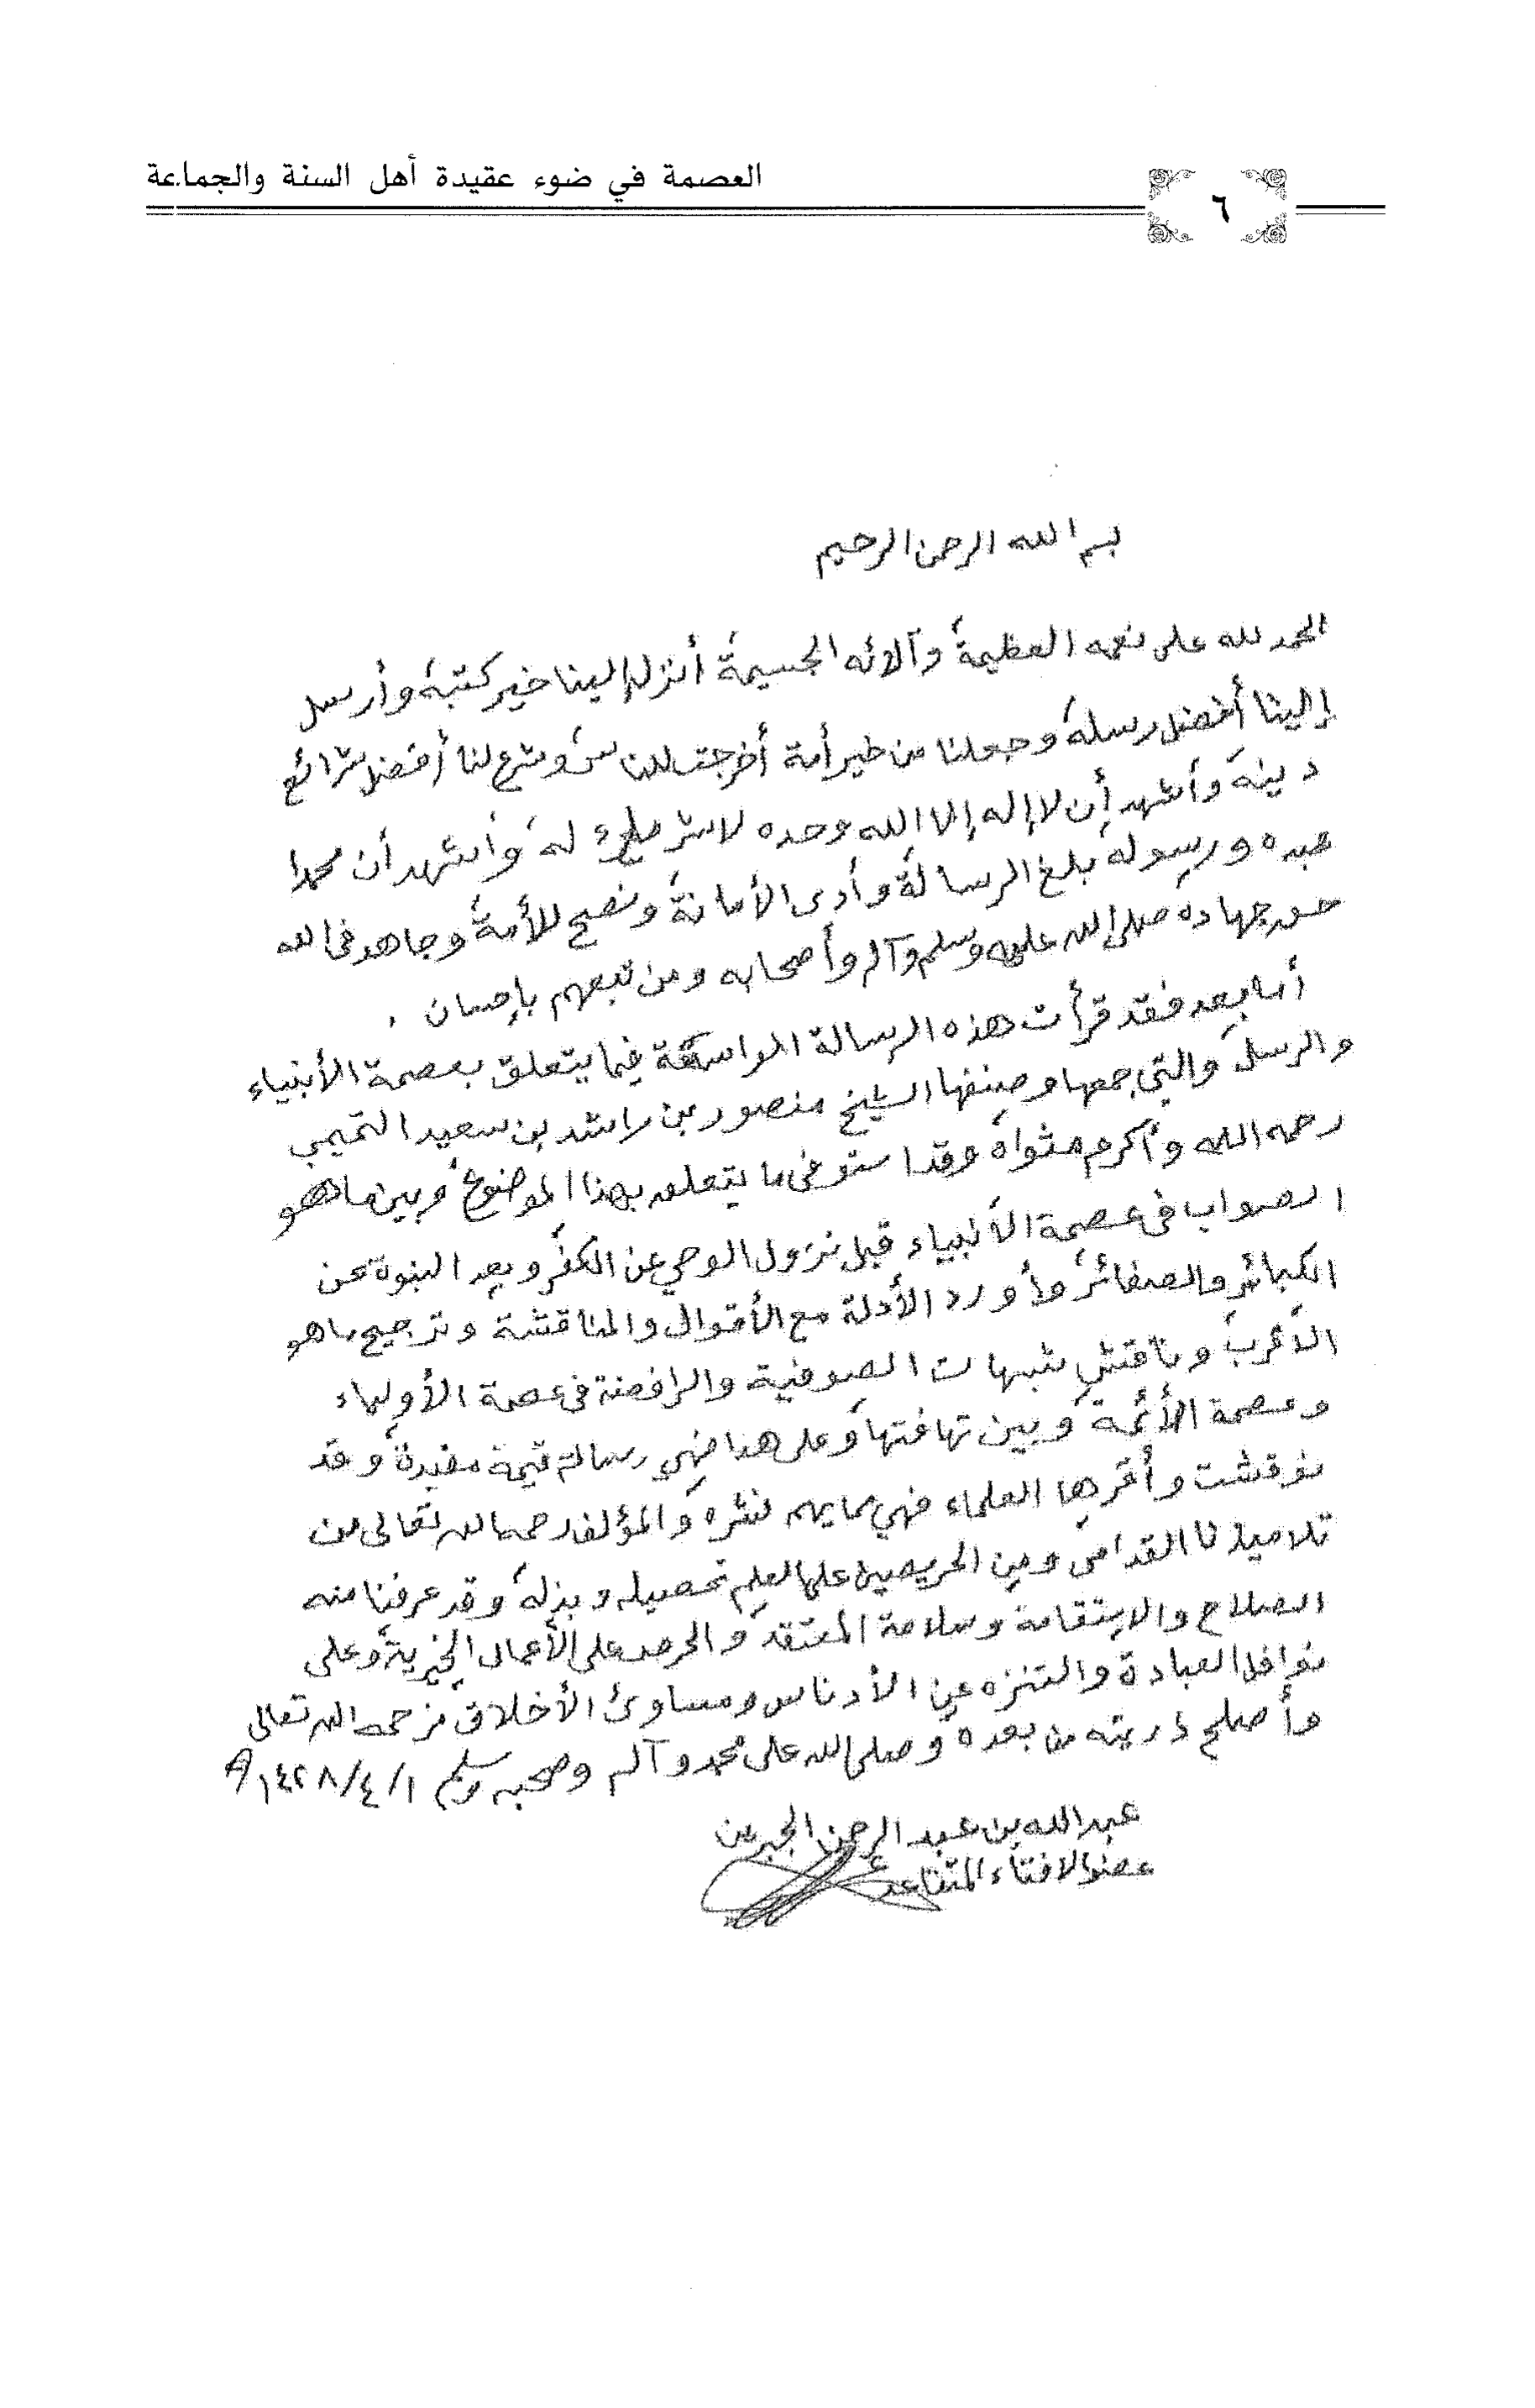 العصمة في ضوء عقيدة أهل السنة والجماعة
٦
بسم الله الرحمن الرحيم
الحمد لله على نعمه العظيمة، وآلائه الجسيمة، أنزل إلينا خير كتبه، وأرسل
إلينا أفضل رسله، وجعلنا من خير أمة أخرجت للناس، وشرع لنا أفضل شرائع
دينه، وأشهد أن لا إله إلا الله وحده لا شريك له، وأشهد أن محمدا
عبده ورسوله، بلغ الرسالة، وأدى الأمانة، ونصح للأمة، وجاهد في الله
حق جهاده صلى الله عليه وسلم وآله وأصحابه ومن تبعهم بإحسان .
أما بعد فقد قرأت هذه الرسالة الواسعة فيما يتعلق بعصمة الأنبياء
والرسل، والتي جمعها وصنفها الشيخ منصور بن راشد بن سعيد التميمي
رحمه الله وأكرم مثواه، وقد استوفى ما يتعلق بهذا الموضوع، وبين ما هو
الصواب في عصمة الأنبياء قبل نزول الوحي عن الكفر، وبعد النبوة عن
الكبائر والصغائر، وأورد الأدلة مع الأقوال والمناقشة وترجيح ما هو
الأقرب، وناقش شبهات الصوفية والرافضة في عصمة الأولياء
وعصمة الأئمة، وبين تهافتها، وعلى هذا فهي رسالة قيمة مفيدة، وقد
نوقشت وأقرها العلماء فهي مما يهم نشره، والمؤلف رحمه الله تعالى من
تلاميذنا القدامى ومن الحريصين على العلم تحصيله وبذله، وقد عرفنا منه
الصلاح والاستقامة وسلامة المعتقد، والحرص على الأعمال الخيرية، وعلى
نوافل العبادة والتنزه عن الأدناس ومساوئ الأخلاق، فرحمه الله تعالى
وأصلح ذريته من بعده، وصلى الله على محمد وآله وصحبه وسلم ١/٤/١٤٢٨ه
عبد الله بن عبد الرحمن الجبرين
عضو الافتاء المتقاعد